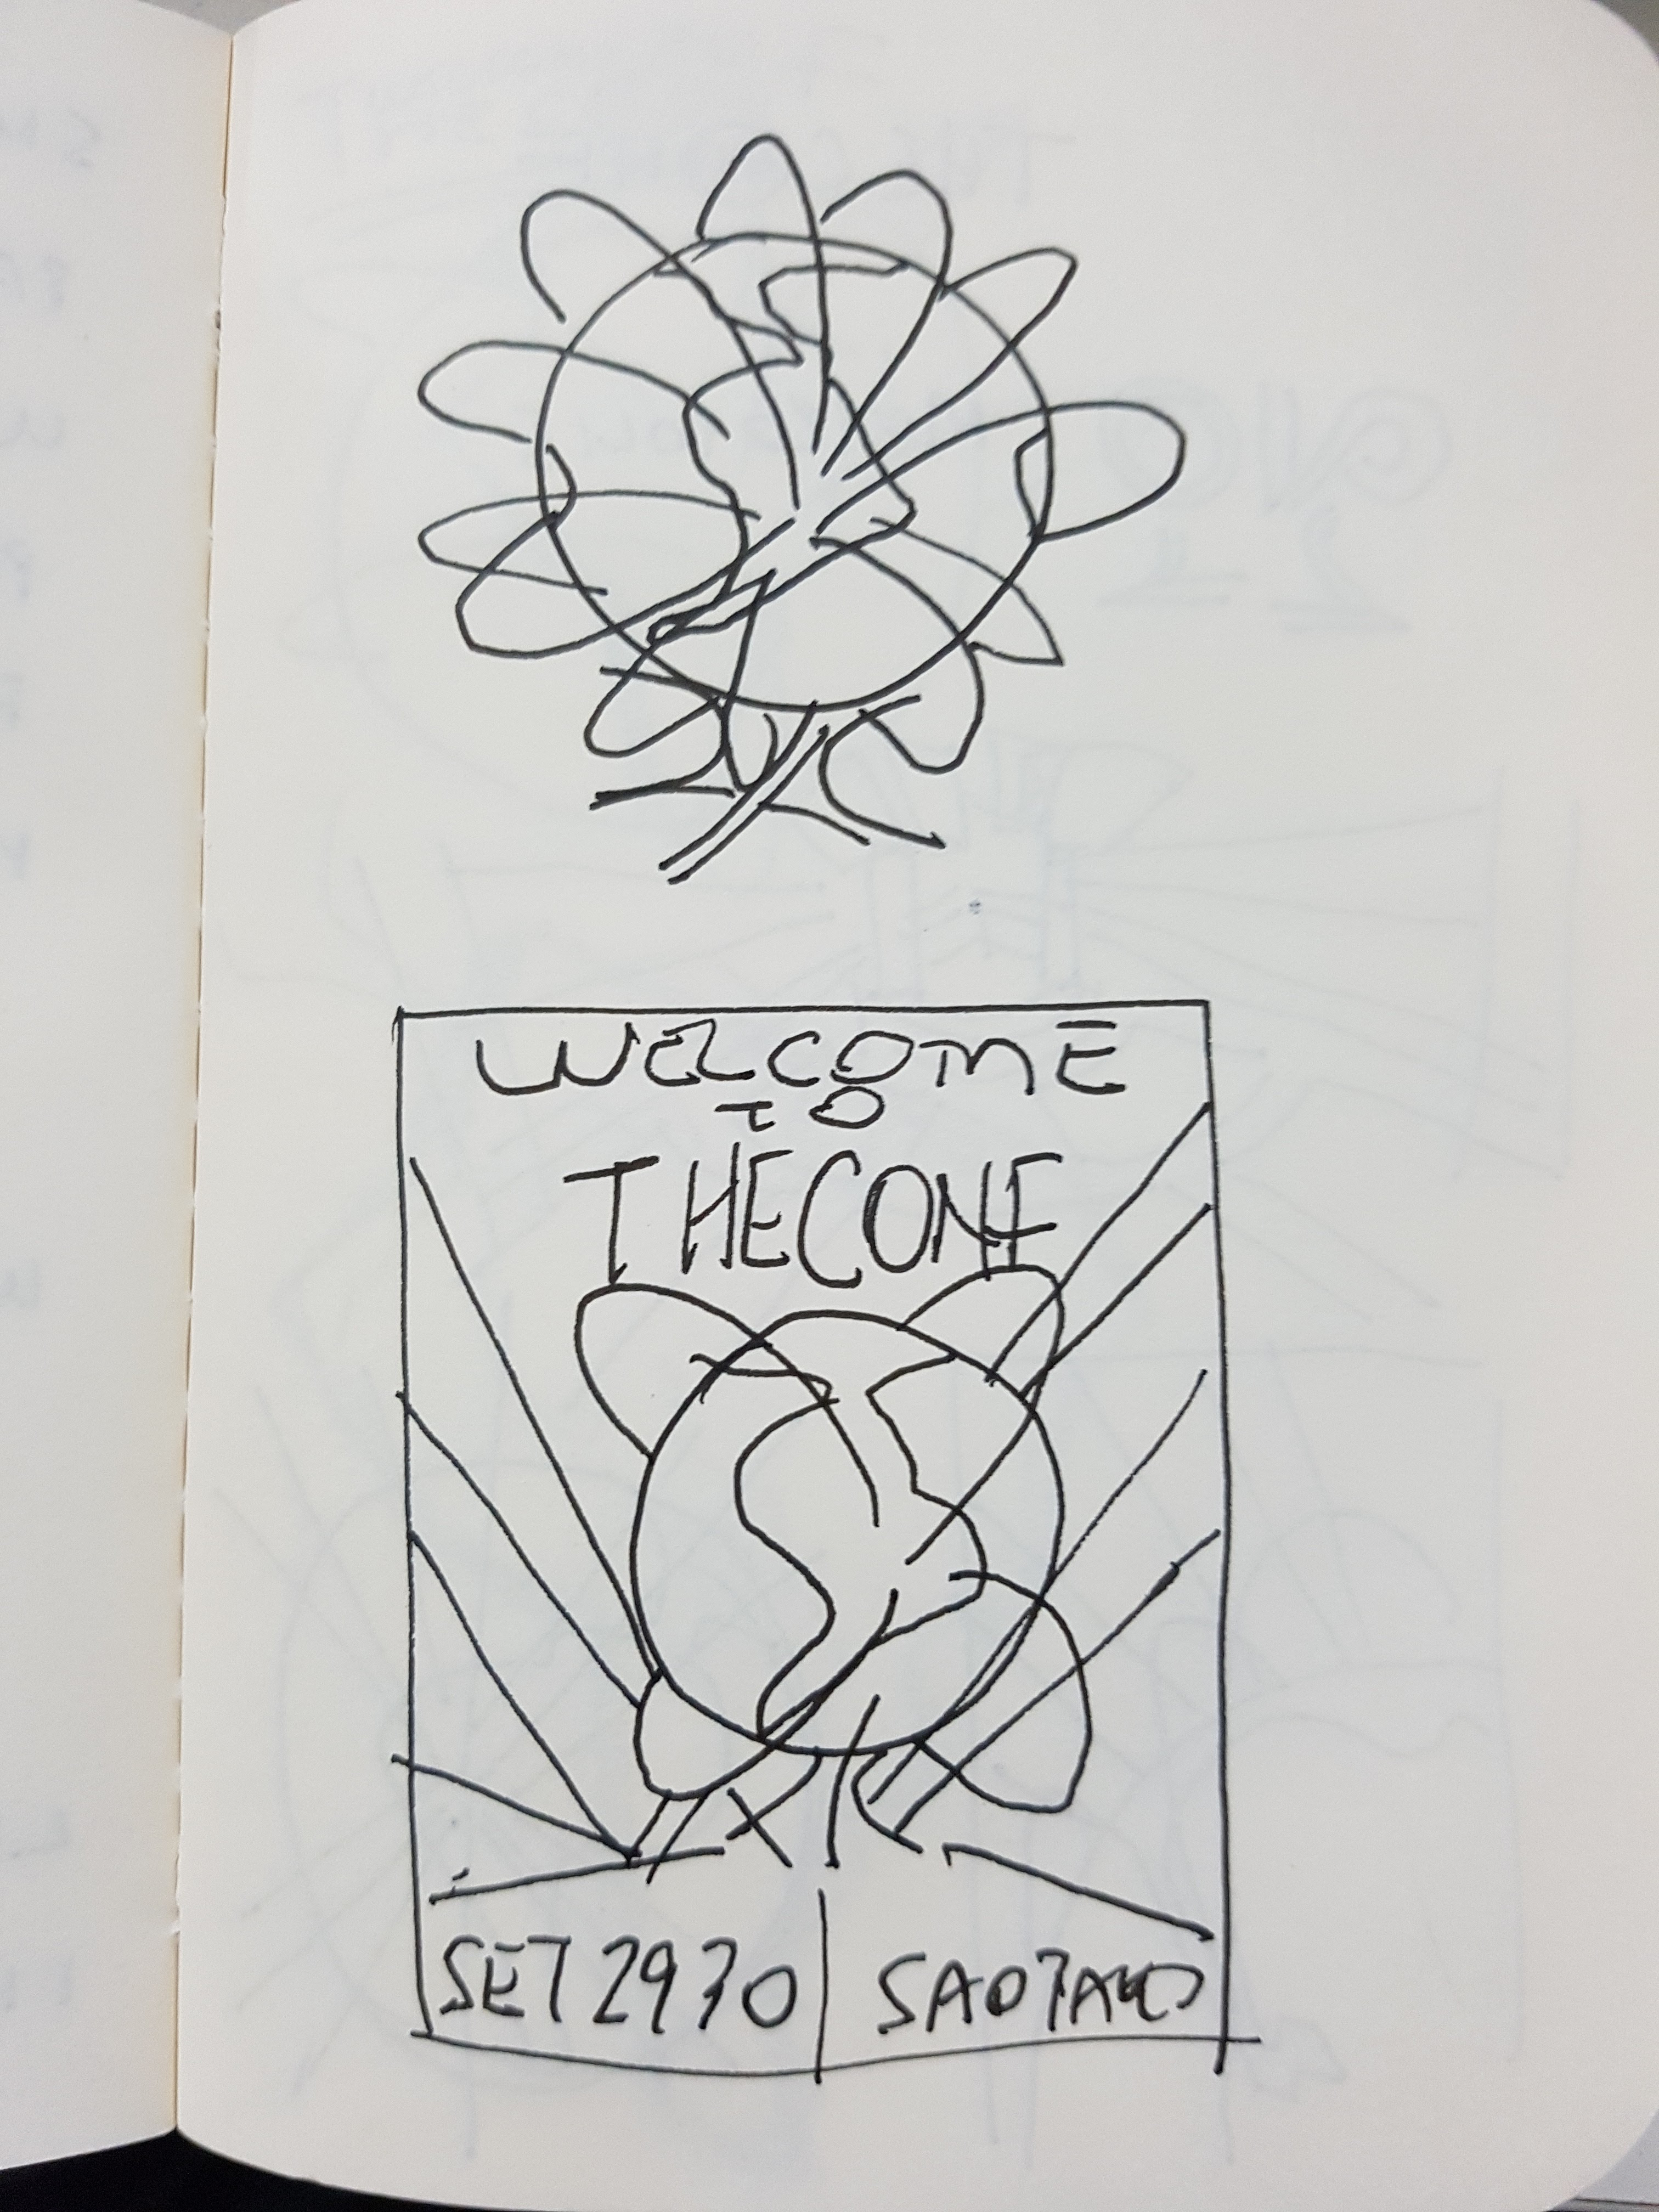 WELCOME
TO
THECONF
SET 29 30
SAO PAULO